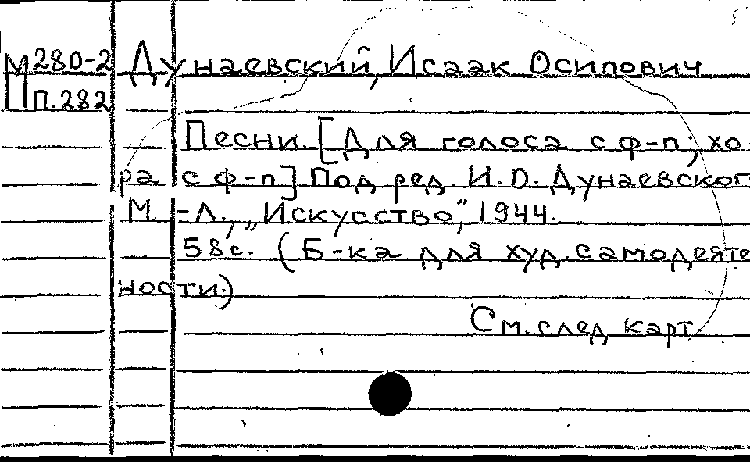 М280-2 Дунаевский, Исаак Осипович
П.282
Песни. [Для голоса с ф-п; хо
ра с ф-п] Под ред. И.О. Дунаевског
М.-Л., „Искусство", 1944.
58с. (Б-ка для худ. самодеяте
ности)
См. след карт.